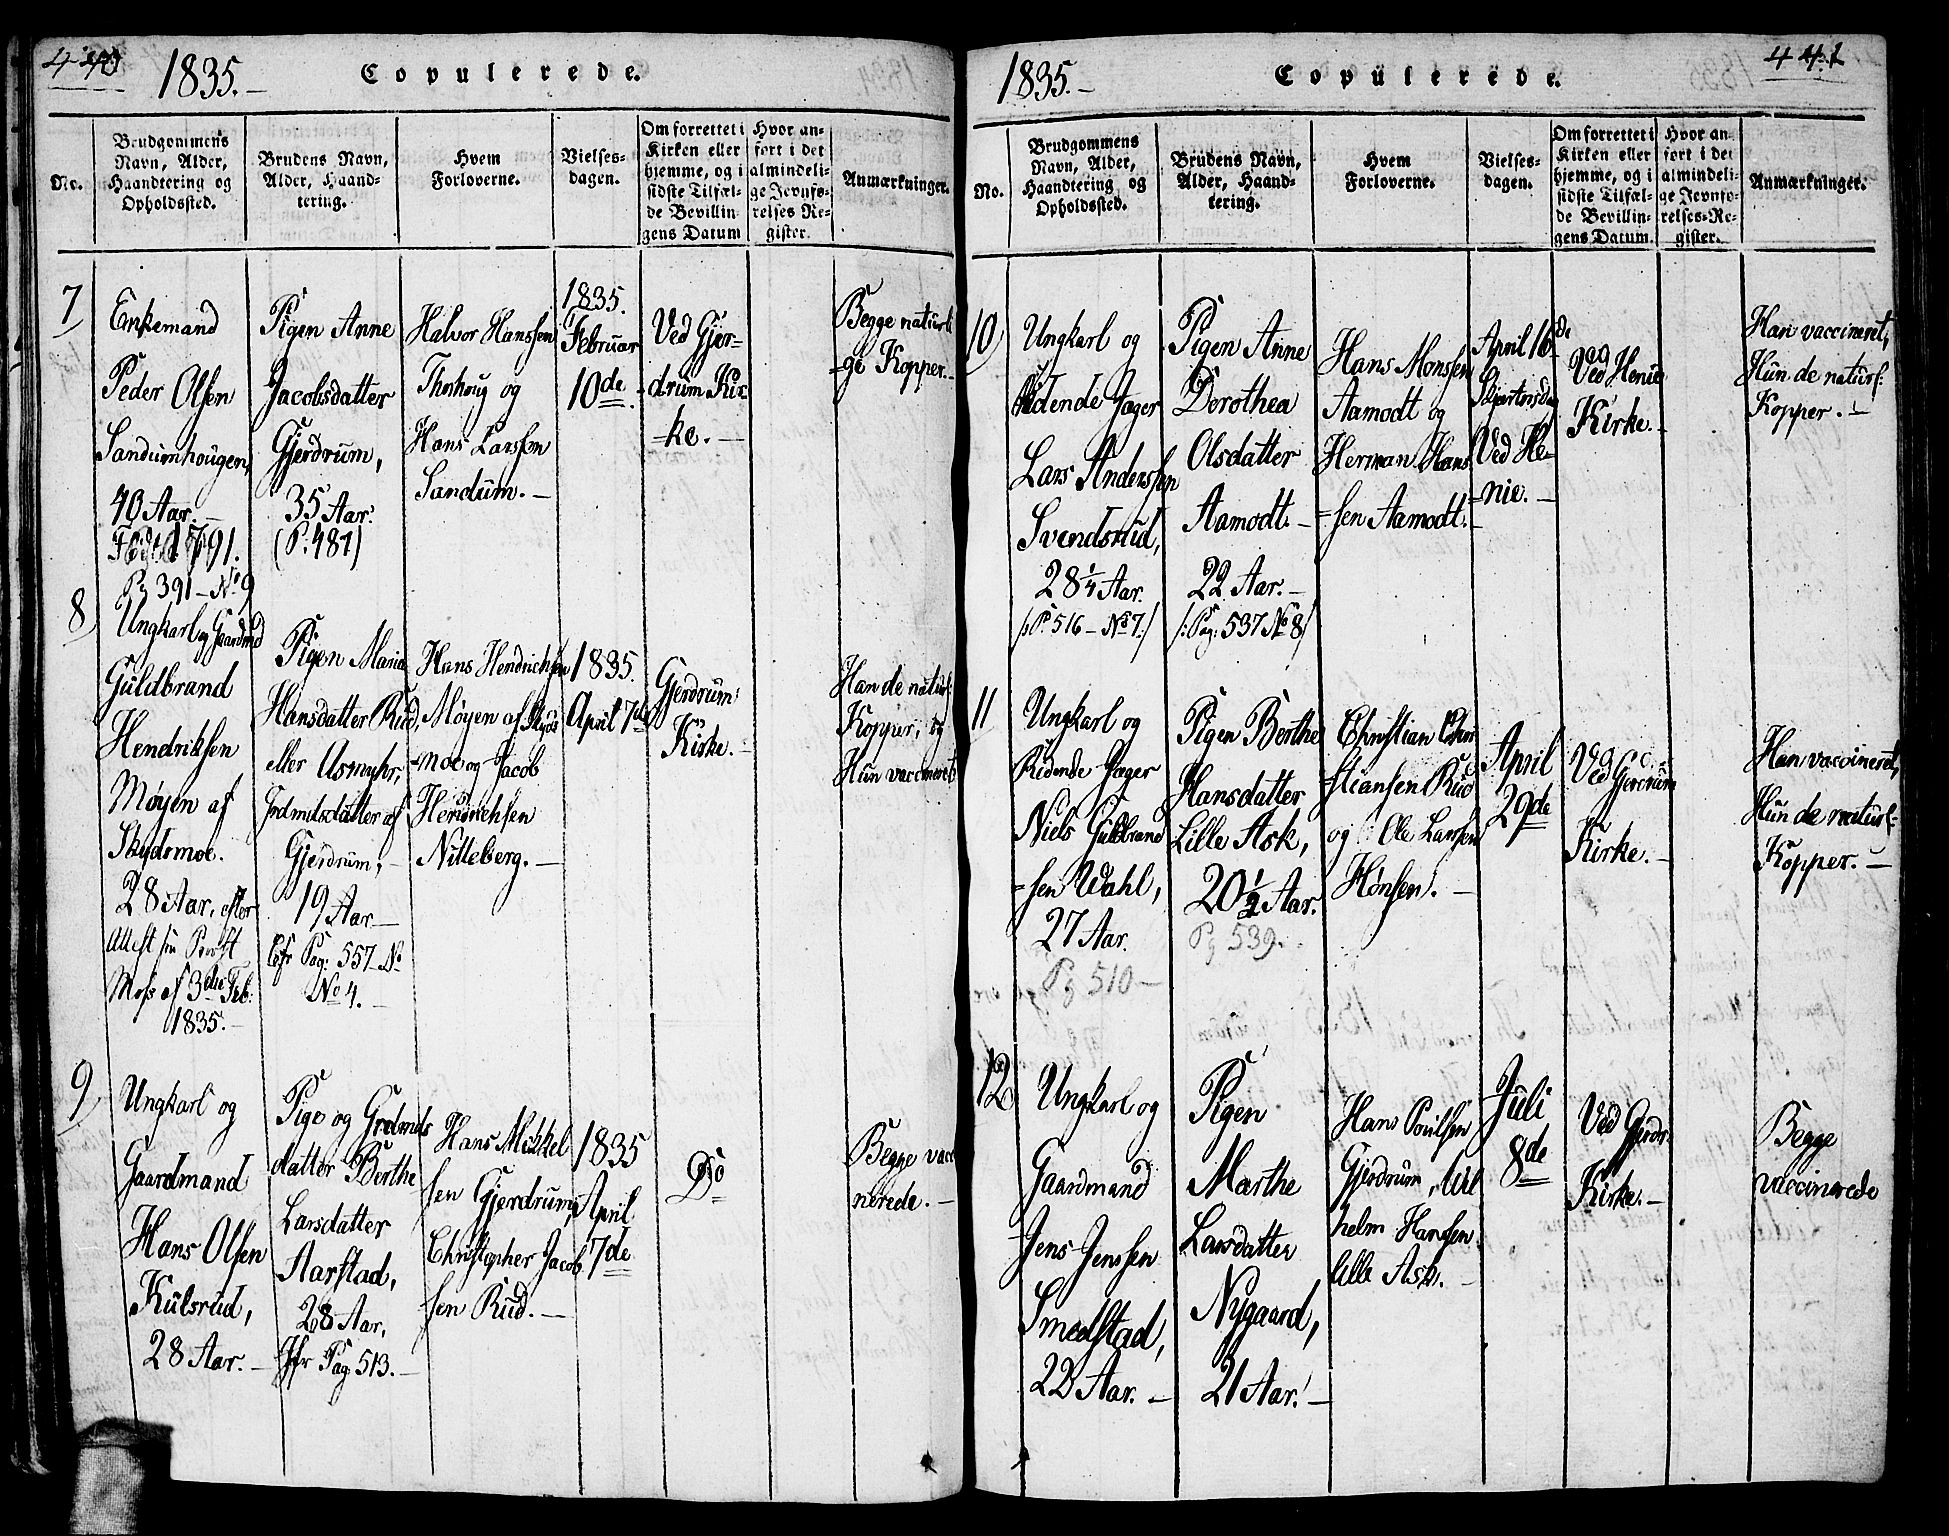 440
1835.–
Copulerede.
No.
Brudgommens
Navn, Alder,
Haandtering og
Opholdssted.
Brudens Navn,
Alder, Haand-
tering.
Hvem
Forloverne.
Vielses-
dagen.
Om forrettet i
Kirken eller
hjemme, og i
sidste Tilfæl-
de Bevillin-
gens Datum
Hvor an-
ført i det
almindeli-
ge Jevnfø-
relses Re-
gister.
Anmærkninger.
7
Enkemand
Peder Olsen
Sandumhougen,
40 Aar.–
Født 1791.
Pg 391 – No 9
Pigen Anne
Jacobsdatter
Gjerdrum,
35 Aar.
(P. 487)
Halvor Hanssen
og
Hans Larssen
Sandum.–
1835.
Februar
10de.
Ved Gjer-
drum Kir
-ke.–
Begge naturli
-ge Kopper.–
8
Ungkarl og Gaardmd
Guldbrand
Hendriksen
Møyen af
Skydsmoe.
28 Aar, efter
Attest fra Provst
Moss af 3die Feb:
1835.–
Pigen Maria
Hansdatter Rud,
eller
af
Gjerdrum,–
19 Aar–
Cfr Pag: 557–No
No 4.–
Hans Hendrichsen
Møyen af Skyds
-moe og Jacob
Hendrichsen
Nitteberg.–
1835.
April 7de
Gjerdrum
Kirke.–
Han de naturl:
Kopper, og
Hun vaccineret
9
Ungkarl og
Gaardmand
Hans Olsen
Kulsrud,
28 Aar.–
Pige og Grdmds
datter Berthe
Larsdatter
Aarstad,
28 Aar,
Jfr Pag 513.–
Hans Mikkel
sen Gjerdrum,
Christopher Jacob
sen Rud.–
1835
April
7de
Do
Begge vacc
nerede.–
441
1835.–
Copulerede.
No.
Brudgommens
Navn, Alder,
Haandtering og
Opholdssted.
Brudens Navn,
Alder, Haand-
tering.
Hvem
Forloverne.
Vielses-
dagen.
Om forrettet i
Kirken eller
hjemme, og i
sidste Tilfæl-
de Bevillin-
gens Datum.
Hvor an-
ført i det
almindeli-
ge Jevnfø-
relses-Re-
gister.
Anmærkninger.
10
Ungkarl og
Ridende Jæger
Lars Anderssen
Svendsrud,
28 1/4 Aar.
/:P. 516 – No 7:/
Pigen Anne
Dorothea
Olsdatter
Aamodt.–
22 Aar.–
/:Pag: 537 No 8/
Hans Monsen
Aamodt og
Herman Hans
=sen Aamodt.
April 16de
Skjertorsdag
Ved He-
nie.–
Ved Henie
Kirke.–
Han vaccineret,
Hun de naturl:
Kopper.–
11
Ungkarl og
Ridende Jæger
Niels Guldbrand
=sen Wahl,
27 Aar.
Pg 510–
Pigen Berthe
Hansdatter
Lille Ask,
20 1/2 Aar.
Pg 539.
Christian Chri
stiansen Rud
og Ole Larsen
Hønsen.–
April
29de
Ved Gjerdrum
Kirke.–
Han vaccineret,
Hun de naturl:
Kopper.–
12
Ungkarl og
Gaardmand
Jens Jenssen
Smedstad,
22 Aar.–
Pigen
Marthe
Larsdatter
Nygaard,
21 Aar.–
Hans Poulsen
Gjerdrum, Wil
helm Hansen
lille Ask.–
Juli
8de
Ved Gjerdr.
Kirke.–
Begge
vaccinerede